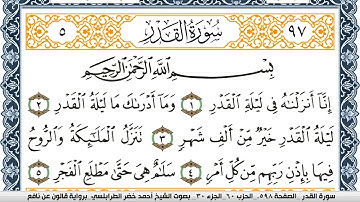 ٩٧ سُورَةُ الْقَدْرِ ٥
بِسْمِ اللَّهِ الرَّحْمَٰنِ الرَّحِيمِ
إِنَّا أَنزَلْنَٰهُ فِي لَيْلَةِ الْقَدْرِ ١ وَمَا أَدْرَىٰكَ مَا لَيْلَةُ الْقَدْرِ ٢
لَيْلَةُ الْقَدْرِ خَيْرٌ مِّنْ أَلْفِ شَهْرٍ ٣ تَنَزَّلُ الْمَلَٰٓئِكَةُ وَالرُّوحُ
فِيهَا بِإِذْنِ رَبِّهِم مِّن كُلِّ أَمْرٍ ٤ سَلَٰمٌ هِيَ حَتَّىٰ مَطْلَعِ الْفَجْرِ ٥
سورة القدر . الصفحة ٥٩٨ . الحزب ٦٠ . الجزء ٣٠ . بصوت الشيخ أحمد خضر الطرابلسي . برواية قالون عن نافع